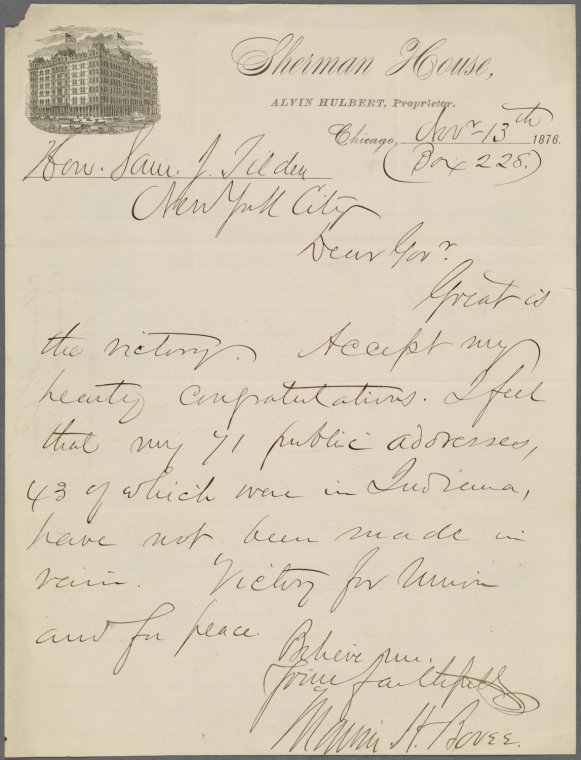 Sherman House,
ALVIN HULBERT, Proprietor.
Chicago, Novr. 13th 1876.
(Box 228.)
Hon. Sam. J. Tilden
New York City
Dear Govr.
Great is
the victory. Accept my
hearty congratulations. I feel
that my 71 public addresses,
43 of which were in Indiana,
have not been made in
vain. Victory for Union
and for peace.
Believe me.
Yours faithfully
Marvin H. Bovee.